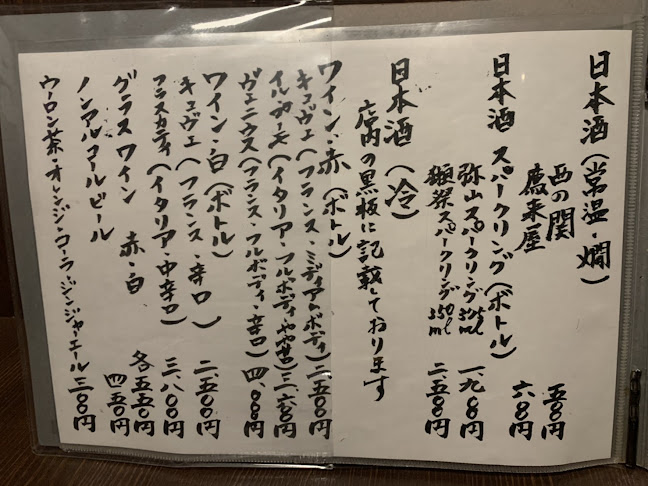 日本酒(常温・燗)
西の関 五〇〇円
鷹来屋 六〇〇円
日本酒 スパークリング(ボトル)
弥山スパークリング ml 一、九〇〇円
獺祭スパークリング ml 二、五〇〇円
日本酒(冷)
店内の黒板に記載しております
ワイン・赤(ボトル)
キュヴェ(フランス・ミディアムボディ)二、五〇〇円
(イタリア・フルボディ 三、六〇〇円
ヴェニウス(フランス・フルボディ・辛口)四、〇〇〇円
ワイン・白(ボトル)
キュヴェ(フランス・辛口)二、五〇〇円
フラスカティ(イタリア・中辛口)三、八〇〇円
グラスワイン 赤・白 各五五〇円
ノンアルコールビール 四五〇円
ウーロン茶・オレンジ・コーラ・ジンジャーエール 三〇〇円